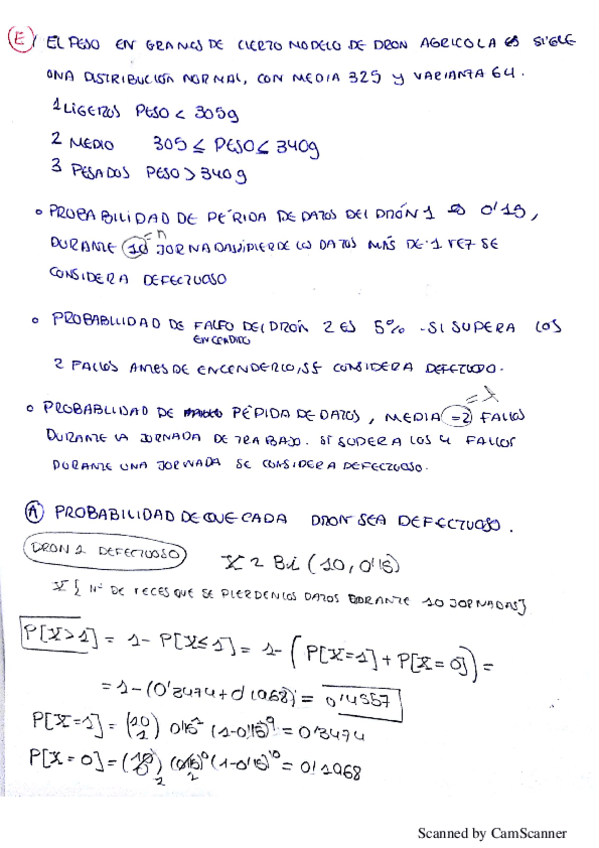 E/ EL PESO EN GRAMOS DE CIERTO MODELO DE DRON AGRICOLA SIGUE
UNA DISTRIBUCIÓN NORMAL, CON MEDIA 325 Y VARIANZA 64.
1 LIGEROS PESO < 305g
2 MEDIO 305 ≤ PESO ≤ 340g
3 PESADOS PESO > 340g
• PROBABILIDAD DE PÉRIDA DE DATOS DEL DRÓN 1 ES 0'15,
DURANTE 10 = n JORNADAS, SI PIERDE LOS DATOS MÁS DE 1 VEZ SE
CONSIDERA DEFECTUOSO
• PROBABILIDAD DE FALLO DEL DRÓN 2 ES 5% - SI SUPERA LOS
ENCENDIDO
2 FALLOS ANTES DE ENCENDERLO, SE CONSIDERA DEFECTUOSO.
= λ
• PROBABLIDAD DE PÉPIDA DE DATOS, MEDIA = 2 FALLOS
DURANTE LA JORNADA DE TRABAJO. SI SUPERA LOS 4 FALLOS
DURANTE UNA JORNADA SE CONSIDERA DEFECTUOSO.
A PROBABILIDAD DE QUE CADA DRON SEA DEFECTUOSO.
DRON 1 DEFECTUOSO X ~ Bi (10, 0'15)
X { Nº DE VECES QUE SE PIERDEN LOS DATOS DURANTE 10 JORNADAS}
P[X>1] = 1 - P[X≤1] = 1 - (P[X=1] + P[X=0]) =
= 1 - (0'3474 + 0'1968) = 0'4557
P[X=1] = (10 1) 0'15 (1-0'15)^9 = 0'3474
P[X=0] = (10 0) (0'15)^0 (1-0'15)^10 = 0'1968
Scanned by CamScanner